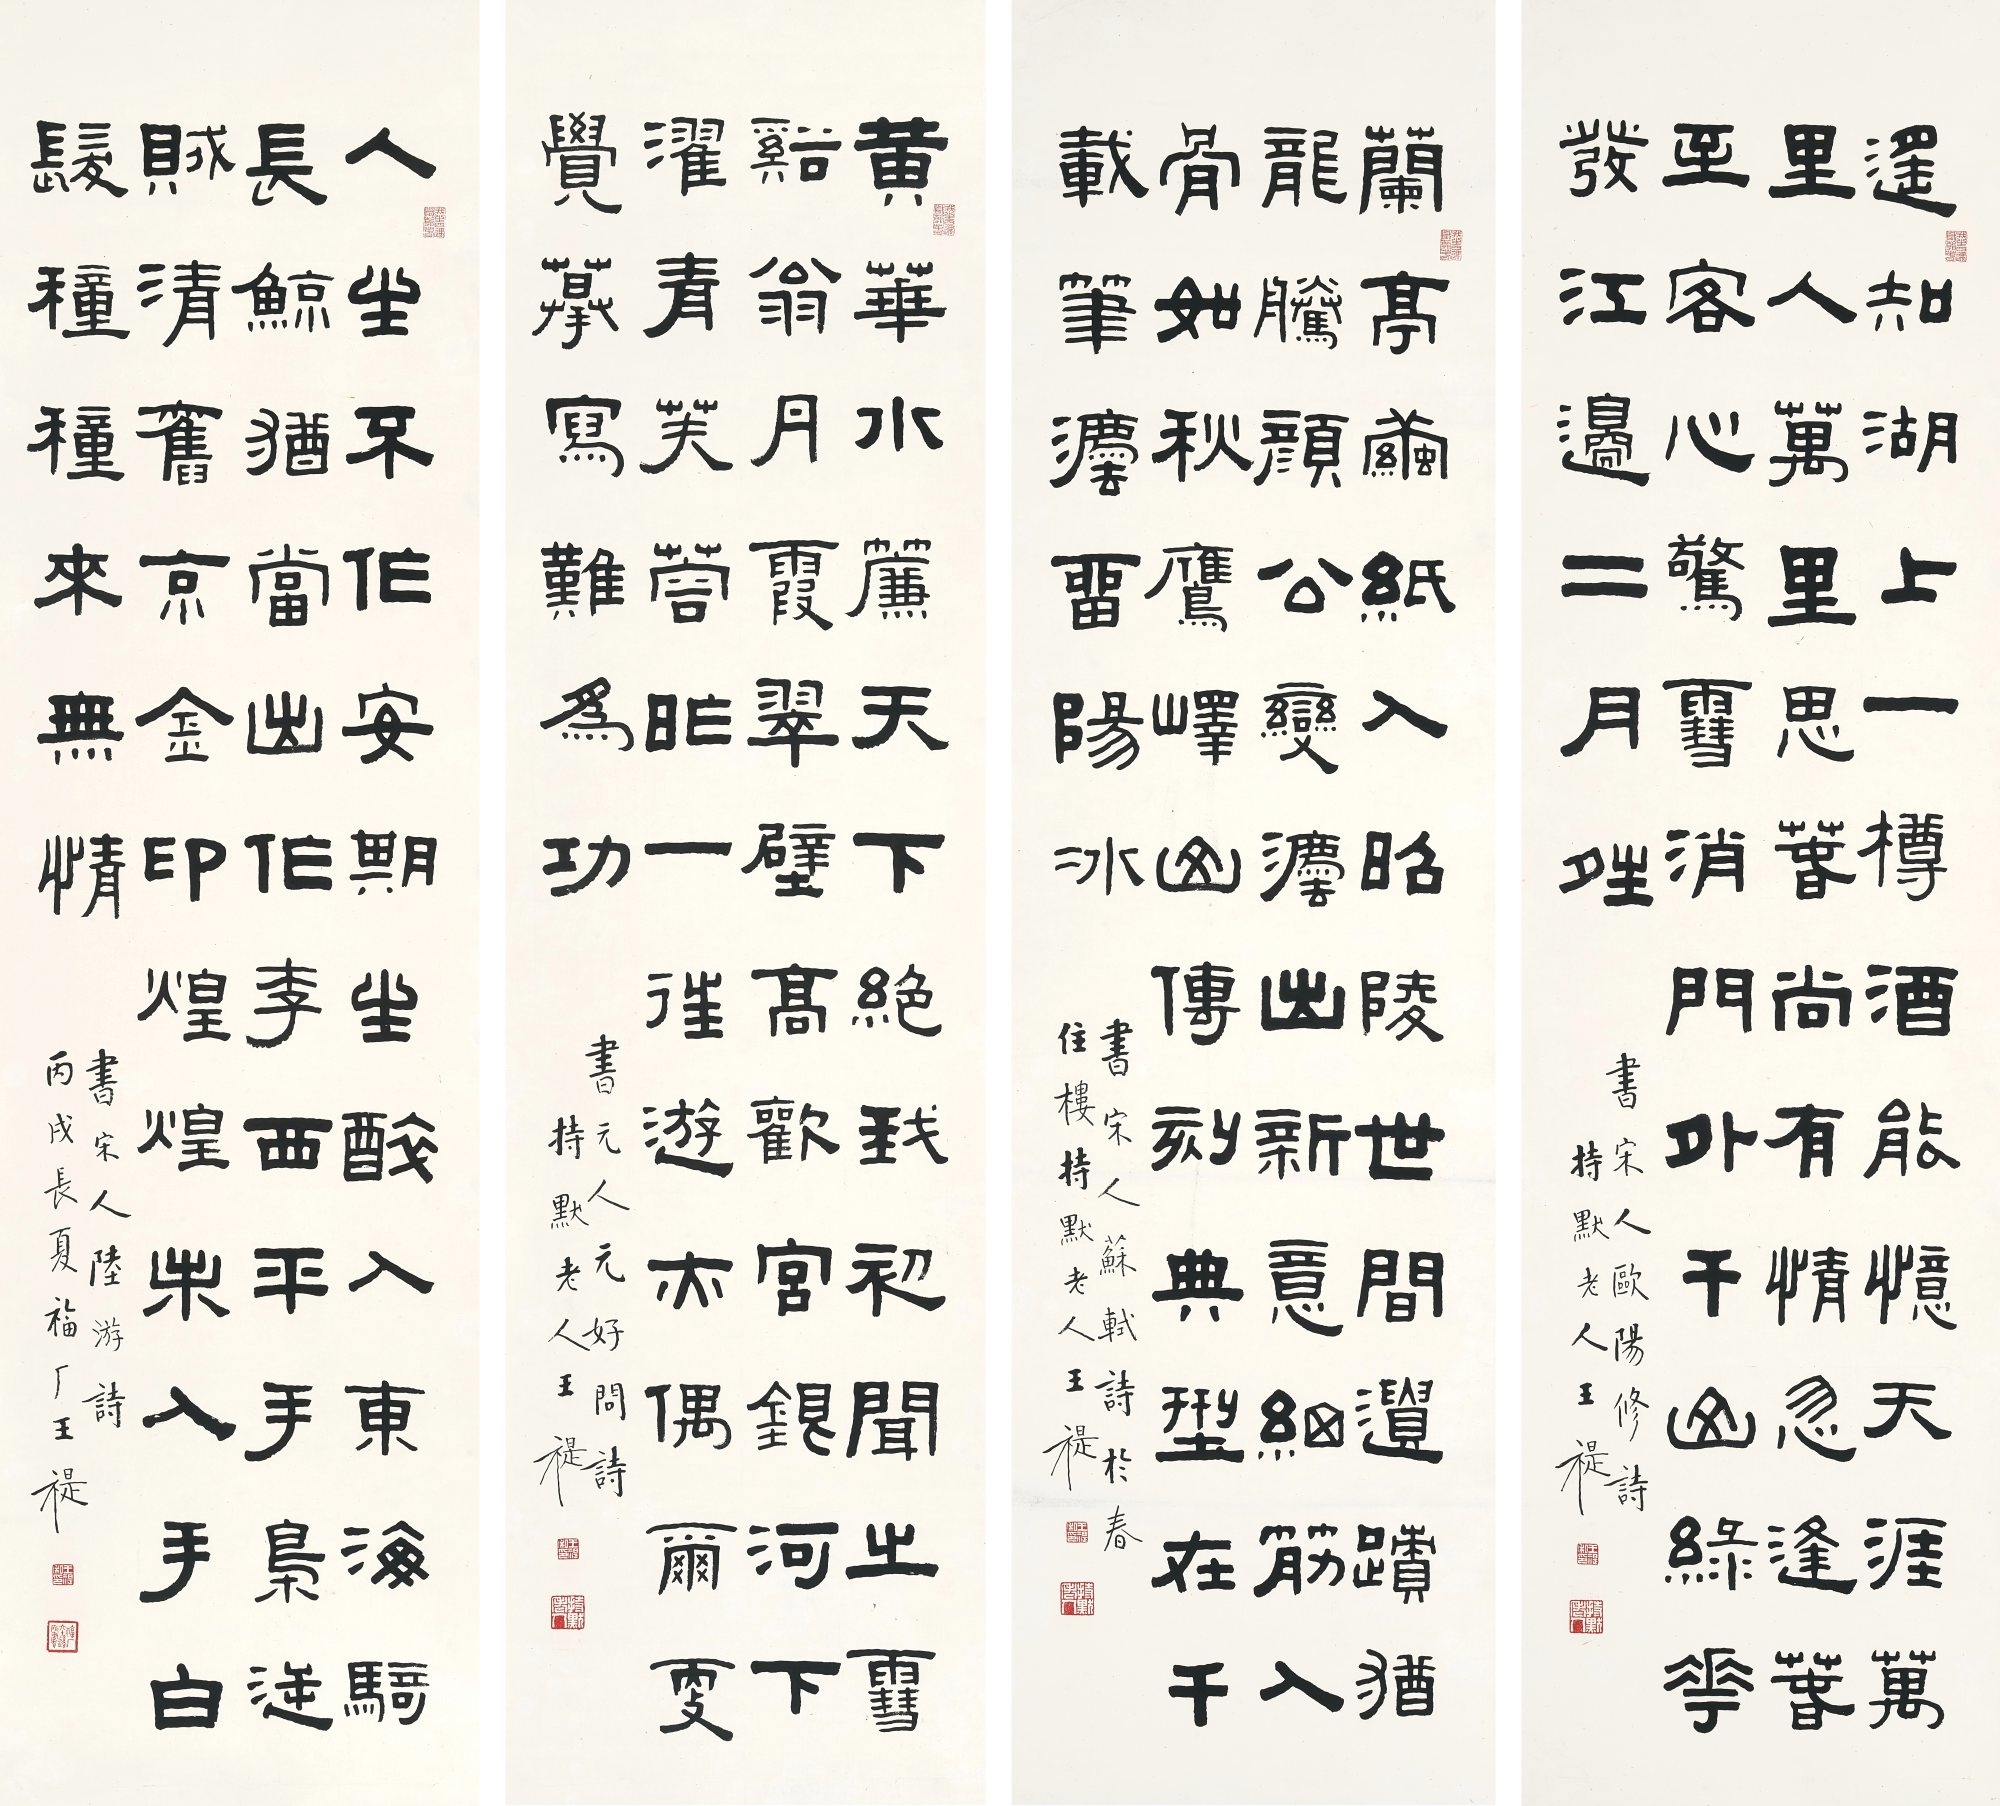 遙知湖上一樽酒能憶天涯萬
里人萬里思春尚有情忽逢春
至客心驚雪消門外千山綠花
發江邊二月晴
書宋人歐陽修詩
持默老人王禔
蘭亭繭紙入昭陵世間遺蹟猶
龍騰顏公變灋出新意細筋入
骨如秋鷹嶧山傳刻典型在千
載筆灋留陽冰
書宋人蘇軾詩於春
住樓持默老人王禔
黃華水簾天下絕我初聞之雪
谿翁丹霞翠壁高歡宮銀河下
濯青芙蓉昨一往遊亦偶爾更
覺摹寫難為功
書元人元好問詩
持默老人王禔
人生不作安期生醉入東海騎
長鯨猶當出作李西平手梟逆
賊清舊京金印煌煌未入手白
髮種種來無情
書宋人陸游詩
丙戌長夏福厂王禔